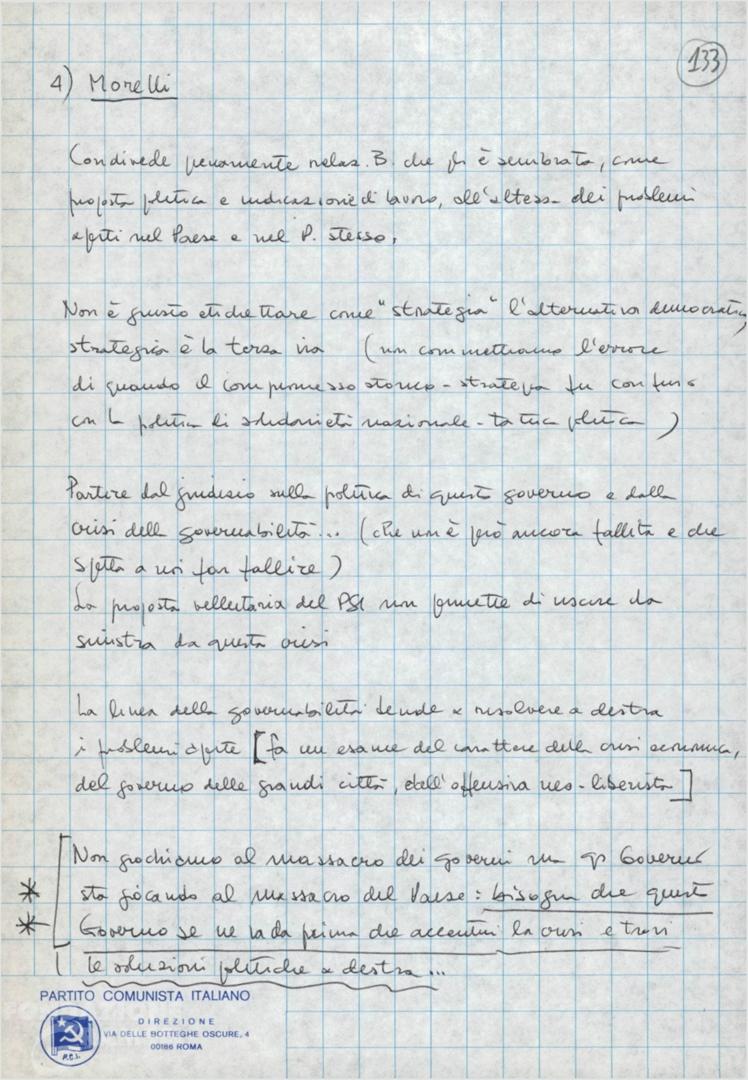 133
4) Morelli
Condivede pienamente relaz. B. che gli è sembrata, come
proposta politica e indicazione di lavoro, all'altezza dei problemi
aperti nel Paese e nel P. stesso,
Non è giusto etichettare come "strategia" l'alternativa democratica,
strategia è la terza via (non commettiamo l'errore
di quando il compromesso storico - strategia fu confuso
con la politica di solidarietà nazionale - tattica politica)
Partire dal giudizio sulla politica di questo governo e dalla
crisi della governabilità... (che non è però ancora fallita e che
spetta a noi far fallire)
La proposta velleitaria del PSI non permette di uscire da
sinistra da questa crisi
La linea della governabilità tende a risolvere a destra
i problemi aperti [fa un esame del carattere della crisi economica,
del governo delle grandi città, dell'offensiva neo-liberista]
Non giochiamo al massacro dei governi ma qs Governo
* sta giocando al massacro del Paese: bisogna che questo
* Governo se ne vada prima che accentui la crisi e trovi
le soluzioni politiche a destra...
PARTITO COMUNISTA ITALIANO
DIREZIONE
VIA DELLE BOTTEGHE OSCURE, 4
00186 ROMA
P.C.I.